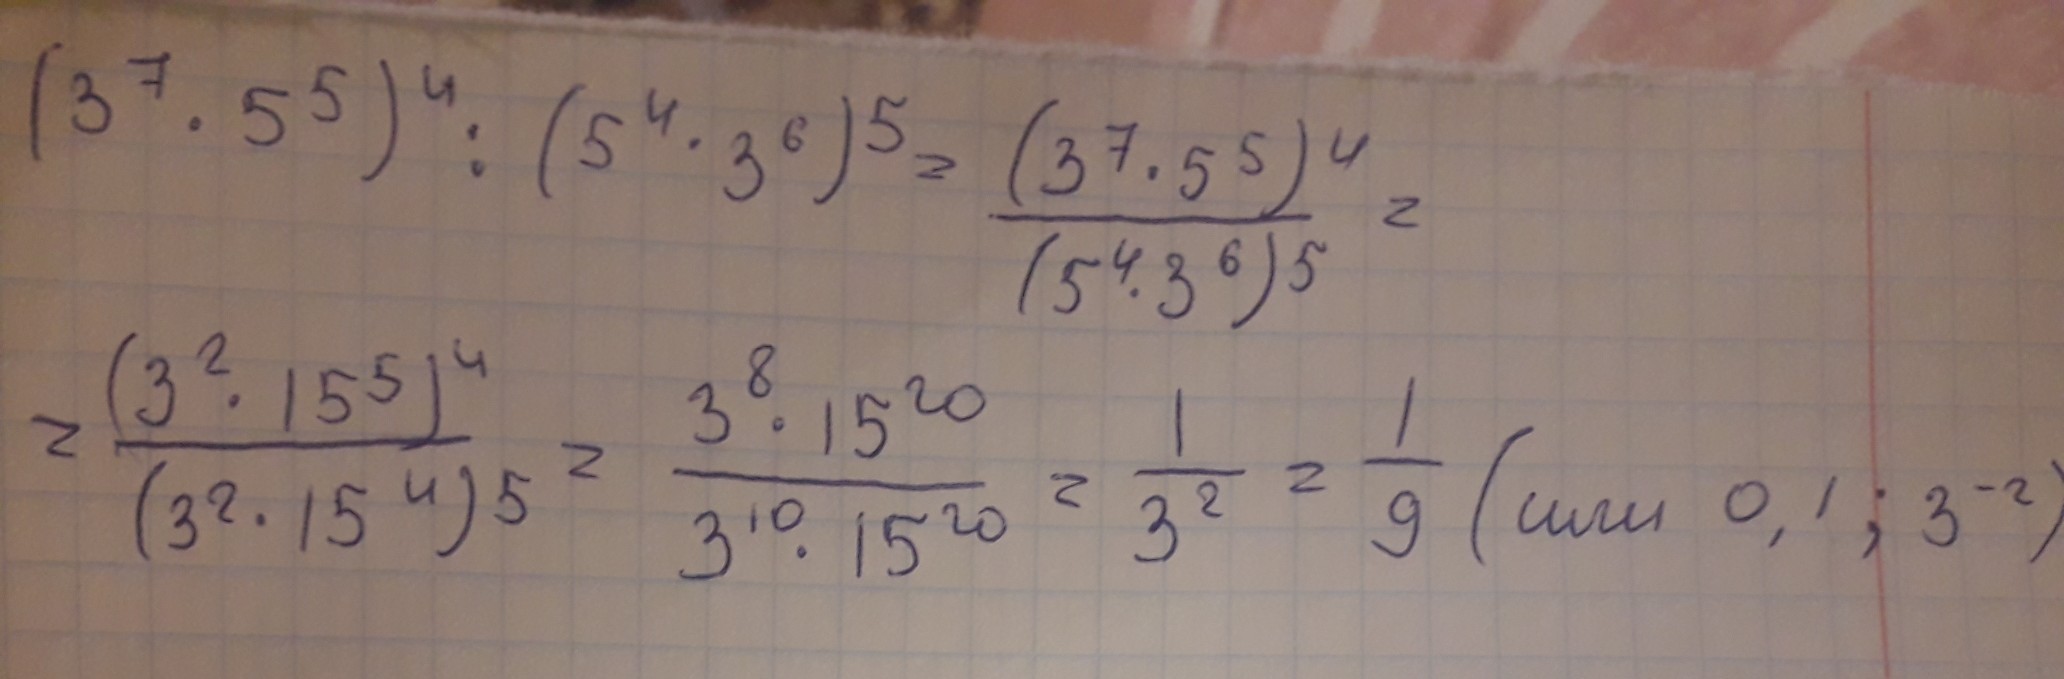 (3⁷ · 5⁵)⁴ : (5⁴ · 3⁶)⁵ = (3⁷ · 5⁵)⁴ / (5⁴ · 3⁶)⁵ =
= (3² · 15⁵)⁴ / (3² · 15⁴)⁵ = 3⁸ · 15²⁰ / 3¹⁰ · 15²⁰ = 1 / 3² = 1 / 9 (или 0,1 ; 3⁻²)